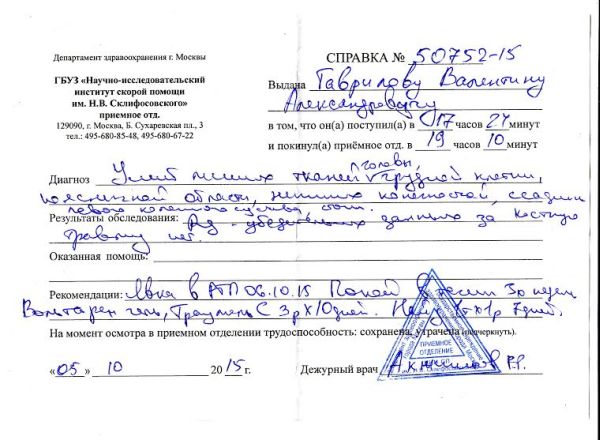 Департамент здравоохранения г. Москвы
ГБУЗ «Научно-исследовательский
институт скорой помощи
им. Н.В. Склифосовского»
приемное отд.
129090, г. Москва, Б. Сухаревская пл., 3
тел.: 495-680-85-48, 495-680-67-22
СПРАВКА № 50752-15
Выдана Гаврилову Валентину
Александровичу
в том, что он(а) поступил(а) в 17 часов 24 минут
и покинул(а) приёмное отд. в 19 часов 10 минут
Диагноз Ушиб мягких тканей головы, грудной клетки,
поясничной области, нижних конечностей, ссадины
левого коленного сустава,
Результаты обследования: Rg - убедительных данных за костную
травму нет.
Оказанная помощь:
Рекомендации: Явка в РТП 06.10.15 Покой
Вольтарен гель, Траумель С 3 р х 10 дней. 7 дней.
На момент осмотра в приемном отделении трудоспособность: сохранена, утрачена (подчеркнуть).
«05» 10 2015 г. Дежурный врач
ПРИЕМНОЕ
ОТДЕЛЕНИЕ